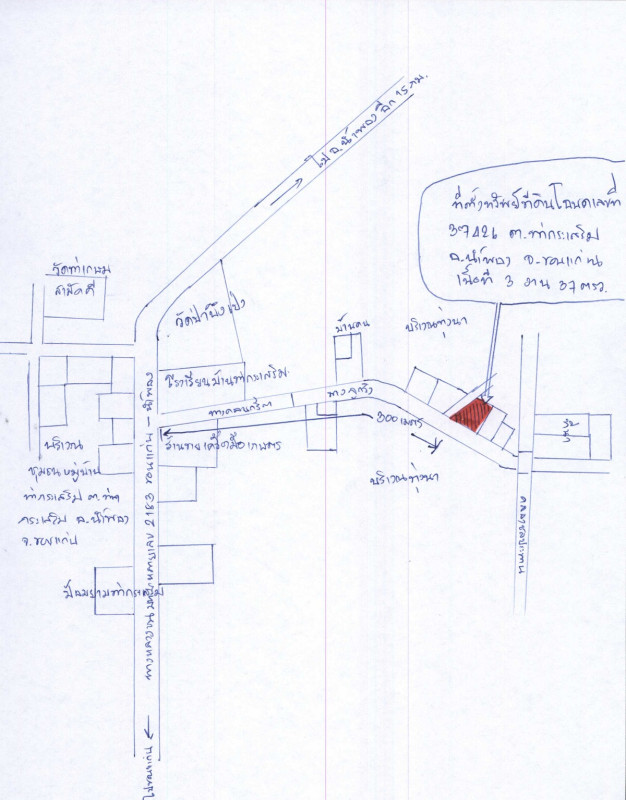 ไป อ.น้ำพอง อีก 15 กม.
ที่ตั้งทรัพย์ที่ดินโฉนดเลขที่
37426 ต.ท่ากระเสริม
อ.น้ำพอง จ.ขอนแก่น
เนื้อที่ 3 งาน 37 ตรว.
วัดท่าเกษม
สามัคคี
วัดป่าบึงเป่ง
บ้านคน
บริเวณทุ่งนา
โรงเรียนบ้านท่ากระเสริม
ทางคอนกรีต
ทางลูกรัง
300 เมตร
ร้านขายเครื่องมือเกษตร
บริเวณทุ่งนา
บริเวณ
ชุมชนหมู่บ้าน
ท่ากระเสริม ต.ท่า
กระเสริม อ.น้ำพอง
จ.ขอนแก่น
ทางหลวงแผ่นดินหมายเลข 2183 ขอนแก่น - น้ำพอง
คลองชลประทาน
ป้อมยามท่ากระเสริม
ไปขอนแก่น